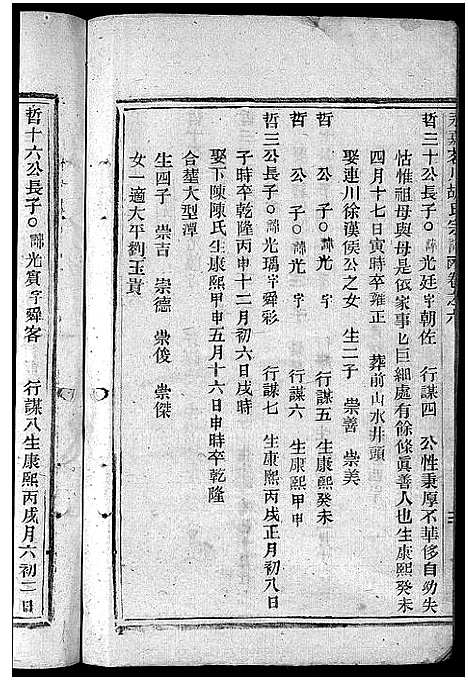 永嘉茗川胡氏宗譜內卷之六
哲三十公長子○諱光廷字朝佐 行謀四 公性秉厚不華侈自幼失
怙惟祖母與母是依家事乜巨細處有餘條眞善人也生康熙癸未
四月十七日寅時卒雍正 葬前山水井頭
娶連川徐漢侯公之女 生二子 崇善 崇美
哲 公子○諱光 行謀五 生康熙癸未
哲 公子○諱光 行謀六 生康熙甲申
哲三公長子○諱光瑀字舜彩 行謀七 生康熙丙戌正月初八日
子時卒乾隆丙申十二月初六日戌時
娶下陳陳氏生康熙甲申五月十六日申時卒乾隆
合塟大型潭
生四子 崇吉 崇德 崇俊 崇傑
女一適大平劉玉貴
哲十六公長子○諱光賓字舜客 行謀八生康熙丙戌月六初三日